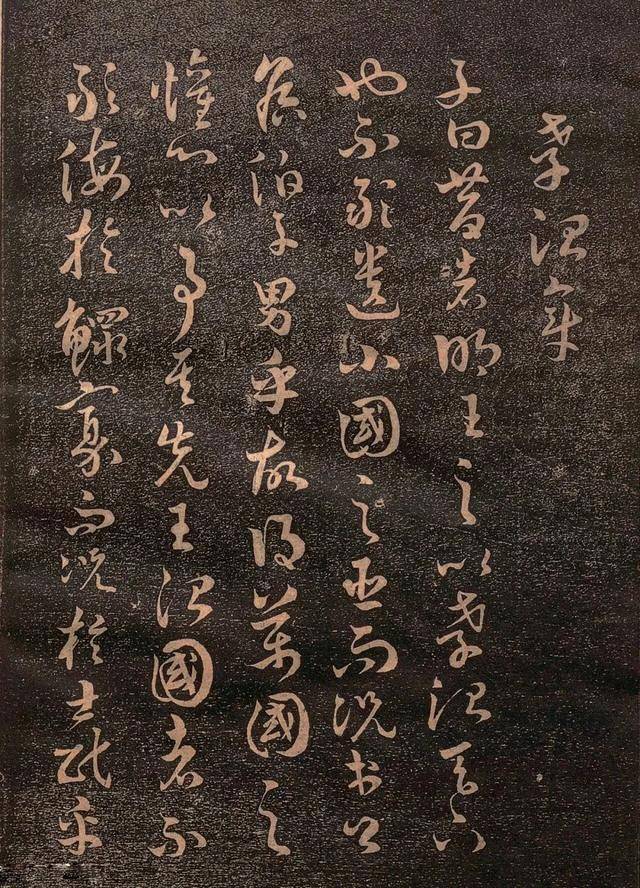 孝治章
子曰昔者明王之以孝治天下
也不敢遺小國之臣而況於公
侯伯子男乎故得萬國之
懽心以事其先王治國者不
敢侮於鰥寡而況於士民乎